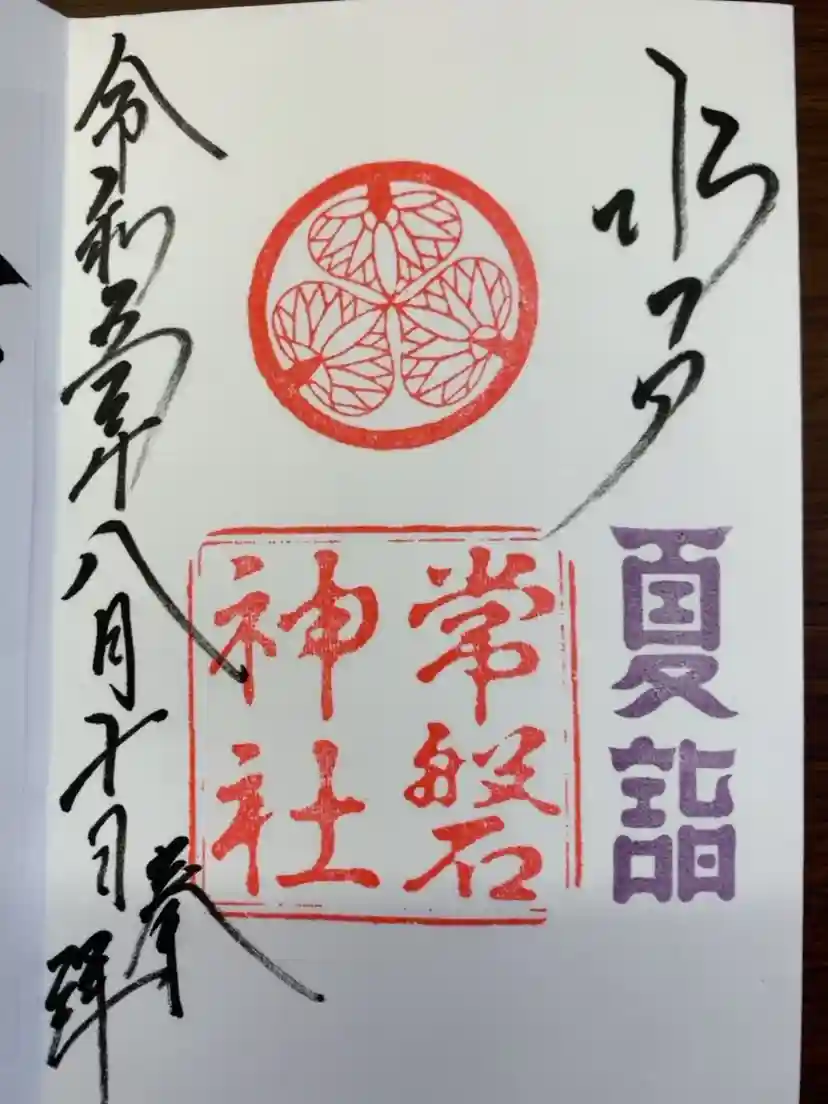 水戸
夏詣
常磐
神社
奉拝
令和五年八月十日